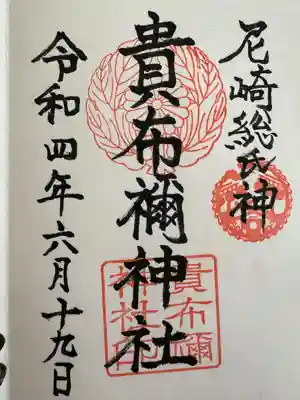 尼崎総氏神
貴布禰神社
貴布禰
神社印
令和四年六月十九日